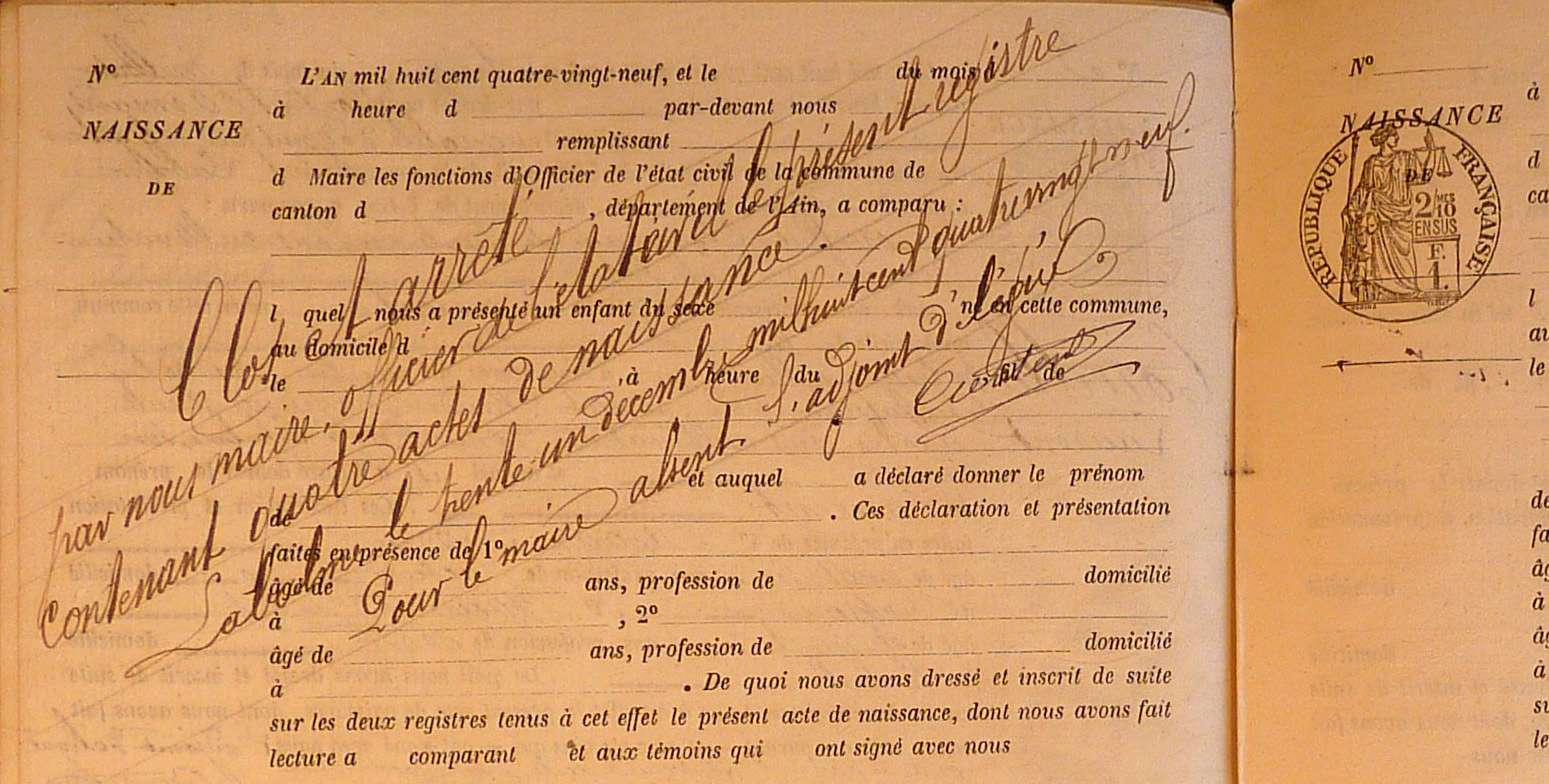 N°
NAISSANCE
DE
L'AN mil huit cent quatre-vingt-neuf, et le du mois
à heure d par-devant nous
remplissant
d Maire les fonctions d'Officier de l'état civil de la commune de
canton d , département de l'Ain, a comparu :
l quel nous a présenté un enfant du sexe né en cette commune,
au domicile d
le , à heure du fil de
et auquel a déclaré donner le prénom
de . Ces déclaration et présentation
faites en présence de 1°
âgé de ans, profession de domicilié
à , 2°
âgé de ans, profession de domicilié
à . De quoi nous avons dressé et inscrit de suite
sur les deux registres tenus à cet effet le présent acte de naissance, dont nous avons fait
lecture a comparant et aux témoins qui ont signé avec nous
Clos et arrêté le présent registre
par nous maire, officier de l'état civil
contenant quatre actes de naissance.
Labalme le trente un décembre mil huit cent quatrevingt neuf.
Pour le maire absent l'adjoint délégué
N°
NAISSANCE
DE
RÉPUBLIQUE FRANÇAISE
2/10
EN SUS
F.
1.
à
d
ca
l
au
le
de
fa
âg
à
âg
à
su
le